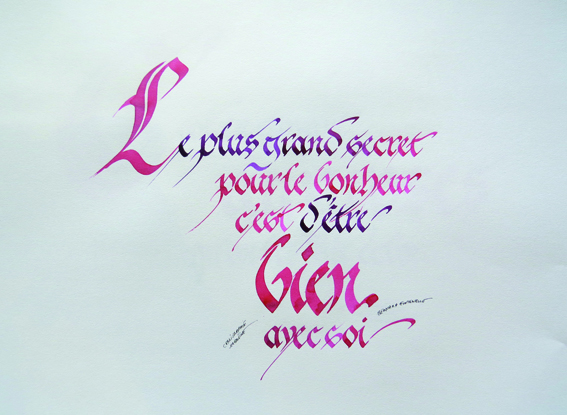 Le plus grand secret
pour le bonheur
c'est d'être
bien
avec soi